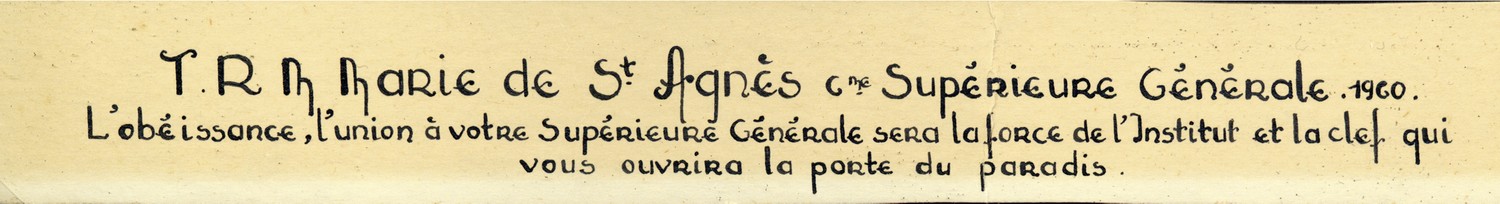 T. R M Marie de St Agnès 6me Supérieure Générale. 1960.
L'obéissance, l'union à votre Supérieure Générale sera la force de l'Institut et la clef qui
vous ouvrira la porte du paradis.